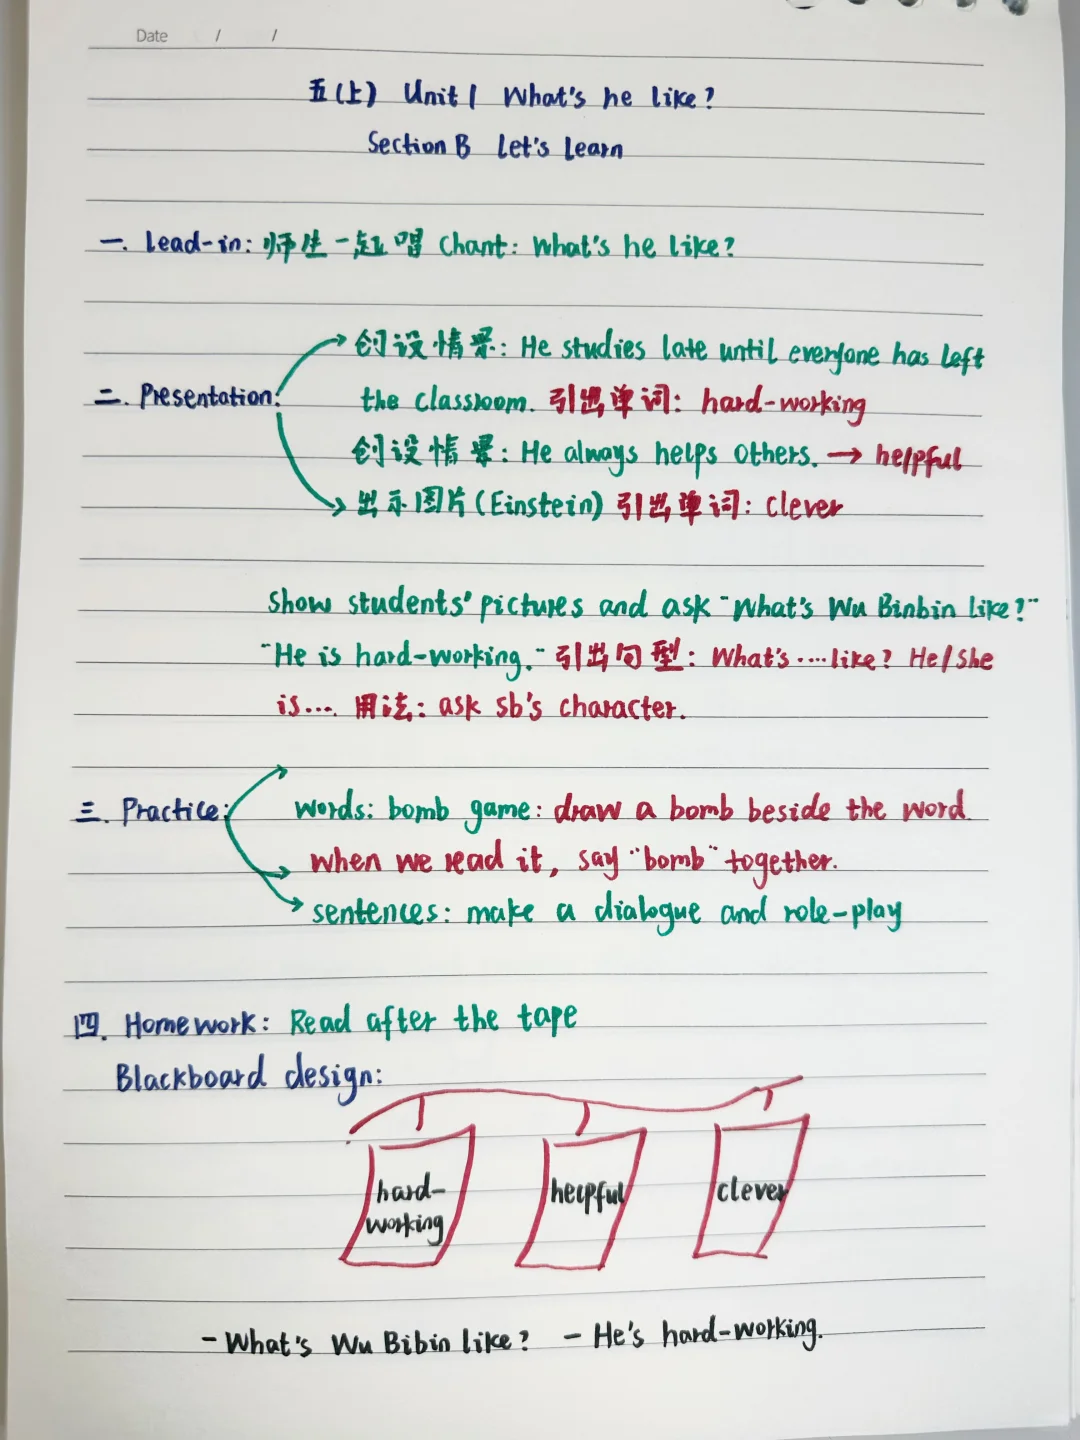 Date / /
五(上) Unit 1 What's he like?
Section B Let's Learn
一. Lead-in: 师生一起唱 Chant: What's he like?
创设情景: He studies late until everyone has left
二. Presentation: the classroom. 引出单词: hard-working
创设情景: He always helps others. → helpful
出示图片(Einstein) 引出单词: clever
Show students' pictures and ask "What's Wu Binbin like?"
"He is hard-working." 引出句型: What's ....like? He/She
is.... 用法: ask sb's character.
三. Practice: words: bomb game: draw a bomb beside the word
when we read it, say "bomb" together.
sentences: make a dialogue and role-play
四. Homework: Read after the tape
Blackboard design:
hard- helpful clever
working
- What's Wu Bibin like? - He's hard-working.